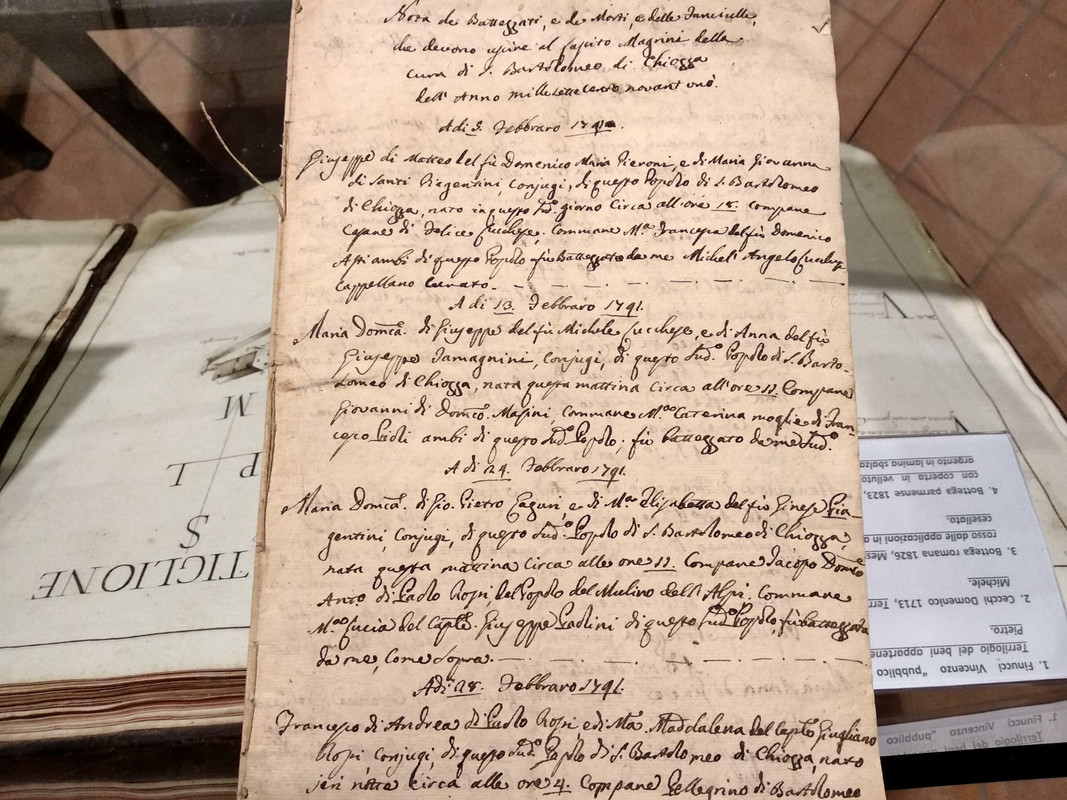 Nota de Battezzati, e de Morti, e delle Fanciulle,
che devono uscire al Magrini della
cura di S. Bartolomeo di Chiozza
dell'Anno mille settecento novant'uno.
Adi 3. Febbraro 1791.
Giuseppe di Matteo del fù Domenico Maria Pieroni, e di Maria Giovanna
di Santi Piagentini, Conjugi, di questo Popolo di S. Bartolomeo
di Chiozza, nato in questo sud.º giorno Circa all'ore 18. Compare
di Felice Lucchese, Commare M.ª Francesca del fù Domenico
ambi di questo Popolo fù Battezzato da me Michel'Angelo Lucchese
Cappellano Curato.
A di 13. Febbraro 1791.
Maria Dom.ca di Giuseppe del fù Michele Lucchese, e di Anna del fù
Giuseppe Tamagnini, Conjugi, di questo sud.º Popolo di S. Barto-
lomeo di Chiozza, nata questa mattina Circa all'ore 12. Compare
Giovanni di Dom.co Masini, Commare M.ª Caterina moglie di Fran-
cesco Paoli ambi di questo sud.º Popolo; fù battezzato da me sud.º
A di 24. Febbraro 1791.
Maria Dom.ca di Gio. Pietro e di M.ª Elisabetta del fù Ginese Pia-
gentini, Conjugi, di questo sud.º Popolo di S. Bartolomeo di Chiozza,
nata questa mattina Circa alle ore 12. Compare Jacopo Dom.co
Ant.º di Paolo Rossi, del Popolo del Mulino dell'Alpi. Commare
M.ª Lucia del Giuseppe Paolini di questo sud.º Popolo, fù battezzata
da me, Come Sopra.
Adi 28. Febbraro 1791.
Francesco di Andrea di Paolo Rossi, e di M.ª Maddalena del Giugliano
Rossi Conjugi, di questo sud.º Popolo di S. Bartolomeo di Chiozza, nato
jeri notte Circa alle ore 4. Compare Pellegrino di Bartolomeo
M
P L
S
TIGLIONE
1. Finucci Vincenzo "pubblico
Terrilogio dei beni appartene
Pietro.
2. Cecchi Domenico 1713, Terr
Michele.
3. Bottega romana 1826, Mes
rosso dalle applicazioni in a
cesellato.
4. Bottega parmense 1823,
con coperta in velluto
argento in lamina sbalza
1. Finucci Vincenzo "pubblico
Terrilogio dei beni